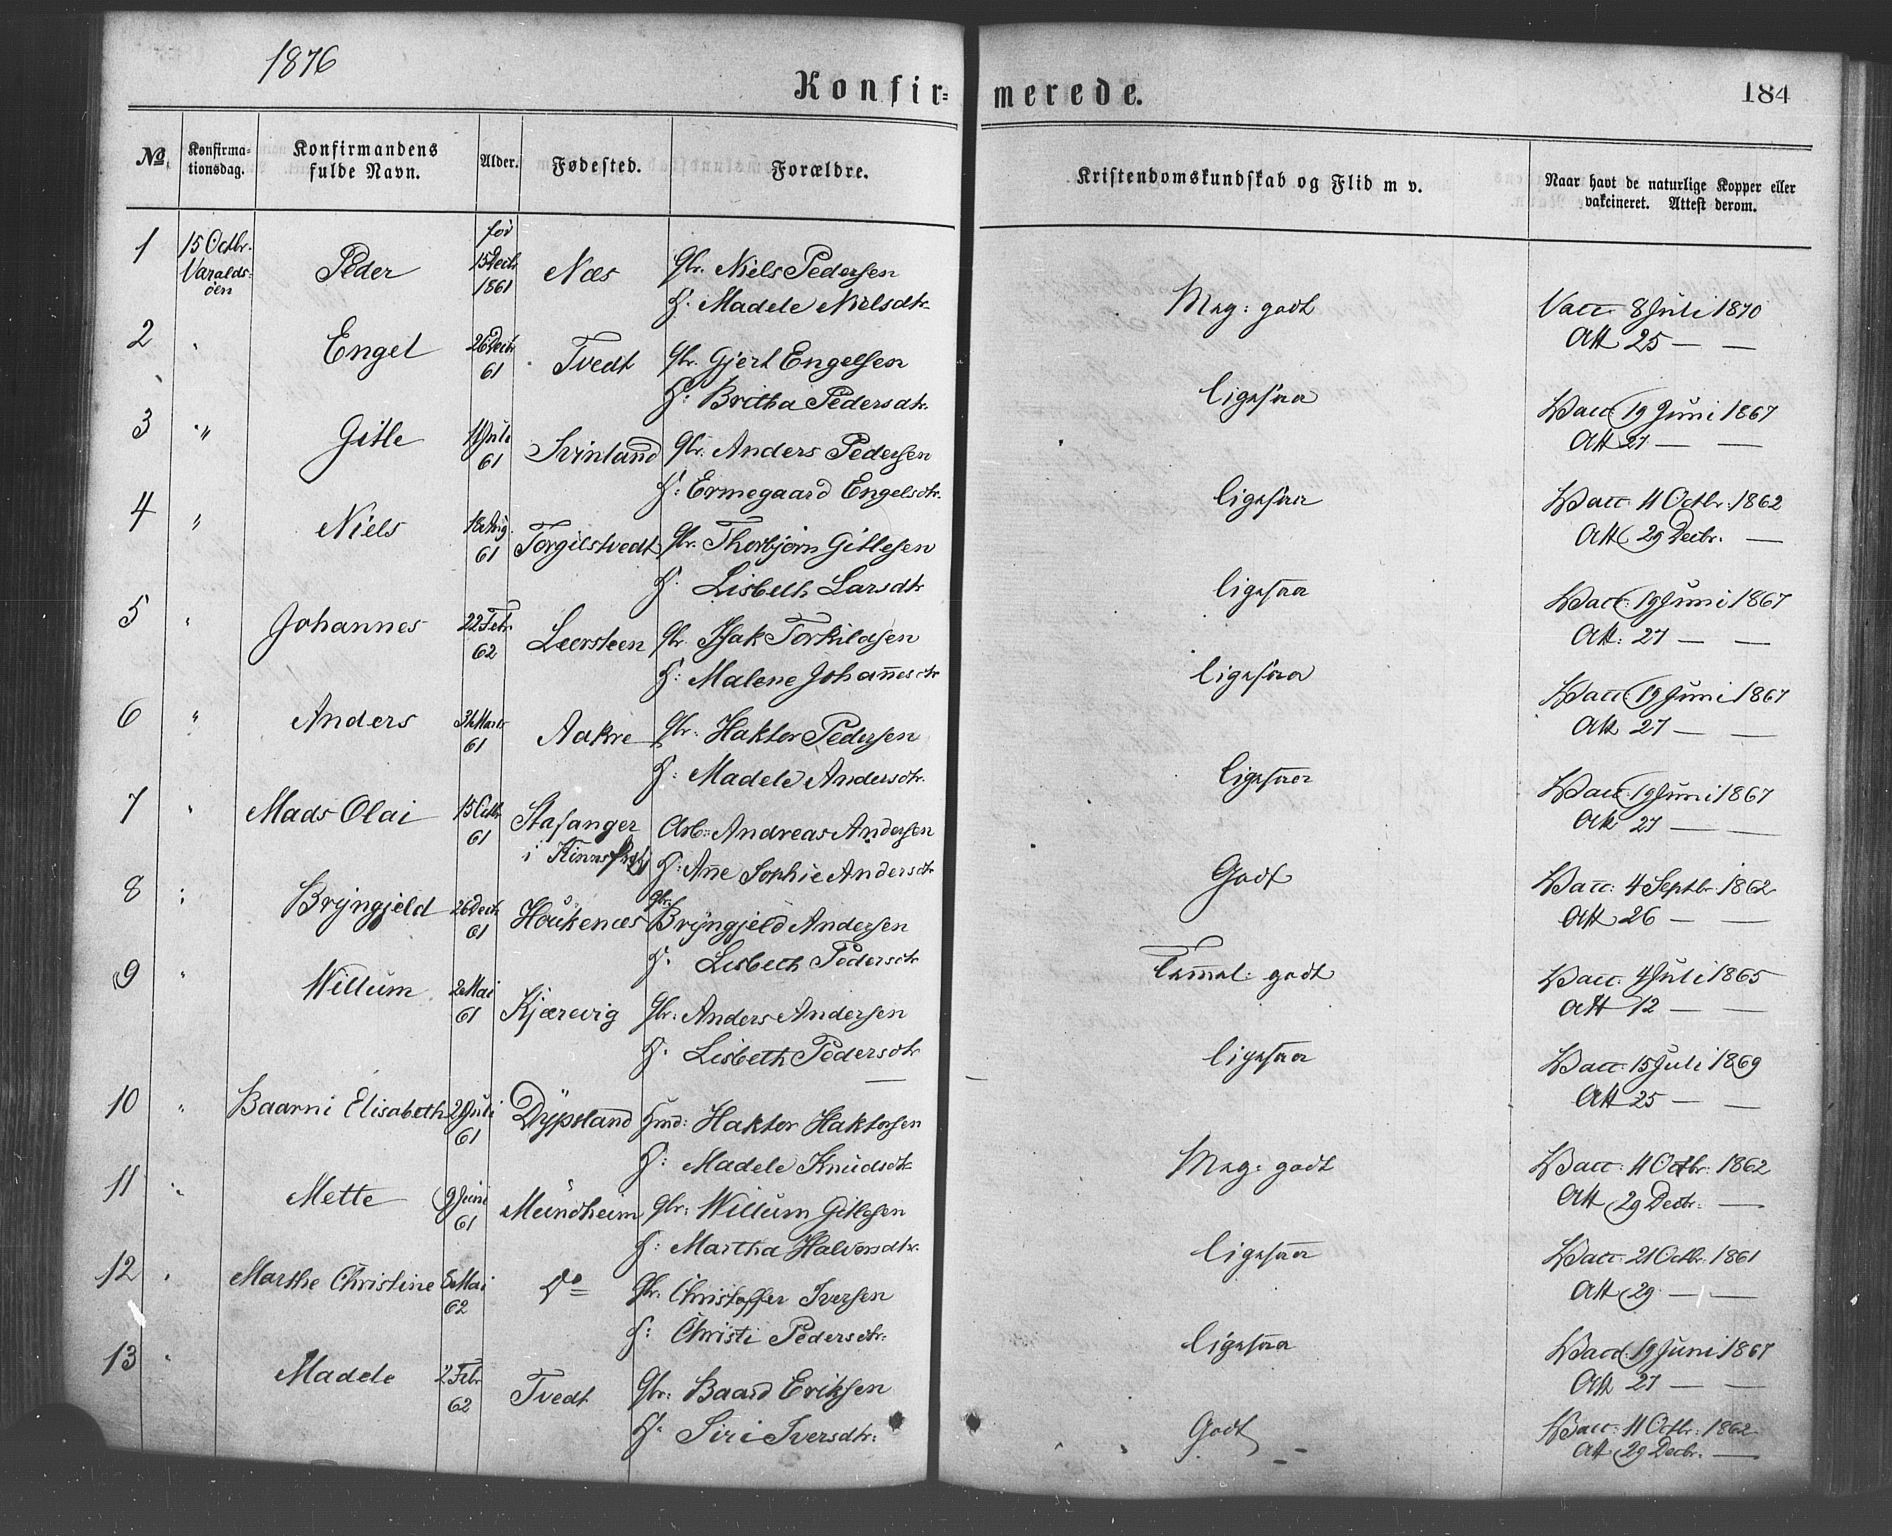 1876
Konfir=merede.
184
No.
Konfirma-
tionsdag.
Konfirmandens
fulde Navn.
Alder.
Fødested.
Forældre.
Kristendomskundskab og Flid m v.
Naar havt de naturlige Kopper eller
vakcineret. Attest derom.
1 15 Octbr. Varalds-
øen Peder 15 Decbr 1861 Næs Gbr. Niels Pedersen
H. Madele Nielsdtr
Meg: godt
Vacc 8 Juli 1870
Att 25 — —
2 " Engel 26 Decbr 61 Tvedt Gbr. Gjert Engelsen
H: Britha Pedersdtr.
Ligesaa
Vacc 19 Juni 1867
Att 27 — —
3 " Gitle Juli 61 Svinland Gbr. Anders Pedersen
H: Ermegaard Engelsdtr.
Ligesaa
Vacc 11 Octbr. 1862
Att 29 Decbr. —
4 " Niels 18 Aug. 61 Torgilstvedt Gbr. Thorbjørn Gitlesen
H. Lisbeth Larsdtr
Ligesaa
Vacc: 19 Juni 1867
Att: 27 — —
5 " Johannes 22 Febr. 62 Leersteen Gbr. Isak Torkildsen
H: Malene Johannesdtr
Ligesaa
Vacc 19 Juni 1867
Att 27 — —
6 " Anders Marts 61 Aakre Gbr. Haktor Pedersen
H: Madele Andersdtr.
Ligesaa
Vacc 19 Juni 1867
Att 27 — —
7 " Mads Olai 15 Octbr 61 Stafanger
i Kinns Arb: Andreas Andersen
H: Anne Sophie Andersdtr
Godt
Vacc: 4 Septbr. 1862
Att 26 — —
8 " Bryngjeld 26 Decbr 61 Houkenæs Gbr. Bryngjeld Andersen
H. Lisbeth Pedersdtr
Temmel: godt
Vacc: 4 Juli 1865
Att 12 — —
9 " Willum 2 Mai 61 Kjærevig Gbr: Anders Andersen
H. Lisbeth Pedersdtr
Ligesaa
Vacc: 15 Juli 1869
Att 25 — —
10 " Baarni Elisabeth Juli 61 Dypsland Hmd: Haktor Haktorsen
H: Madele Knudsdtr
Meg: godt
Vacc: 11 Octbr. 1862
Att 29 Decbr. —
11 " Mette 9 Juni 61 Mundheim Gbr: Willum Gitlesen
H: Martha Halvorsdtr.
Ligesaa
Vacc: 21 Octbr. 1861
Att 29 — —
12 " Marthe Christine 5 Mai 62 Do Gbr: Christoffer Iversen
H: Christi Pedersdtr.
Ligesaa
Vacc: 19 Juni 1867
Att 27 — —
13 " Madele 2 Febr 62 Tvedt Gbr: Baard Eriksen
H. Siri Iversdtr:
Godt
Vacc: 11 Octbr: 1862
Att 29 Decbr. —